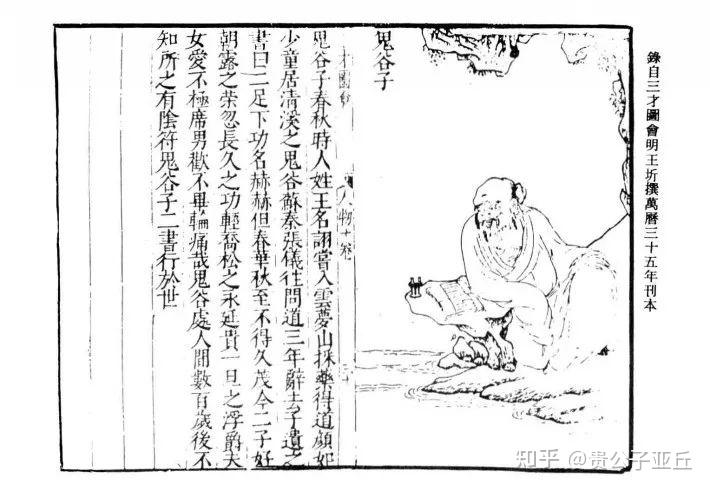 錄自三才圖會明王圻撰萬曆三十五年刊本
鬼谷子
才圖會
人物十卷
鬼谷子春秋時人姓王名詡嘗入雲夢山採藥得道顏如
少童居清溪之鬼谷蘇秦張儀往問道三年辭去子遺之
書曰二足下功名赫赫但春華秋至不得久茂今二子好
朝露之榮忽長久之功輕喬松之永延貴一旦之浮爵夫
女愛不極席男歡不畢輪痛哉鬼谷處人間數百歲後不
知所之有陰符鬼谷子二書行於世
知乎 @贵公子亚丘